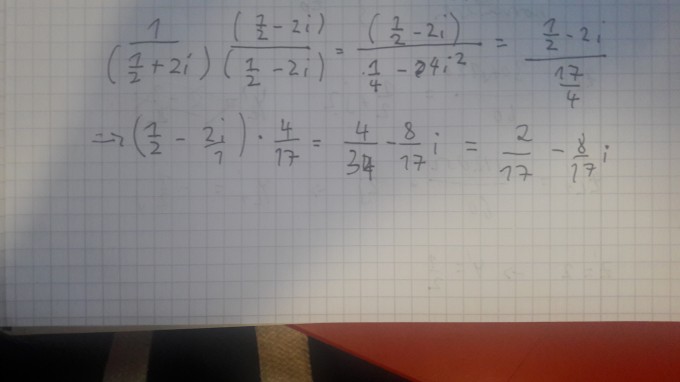 \frac{1}{(\frac{1}{2}+2i)} \frac{(\frac{1}{2}-2i)}{(\frac{1}{2}-2i)} = \frac{(\frac{1}{2}-2i)}{\frac{1}{4}-4i^2} = \frac{\frac{1}{2}-2i}{\frac{17}{4}}
=> (\frac{1}{2} - \frac{2i}{1}) \cdot \frac{4}{17} = \frac{4}{34} - \frac{8}{17}i = \frac{2}{17} - \frac{8}{17}i